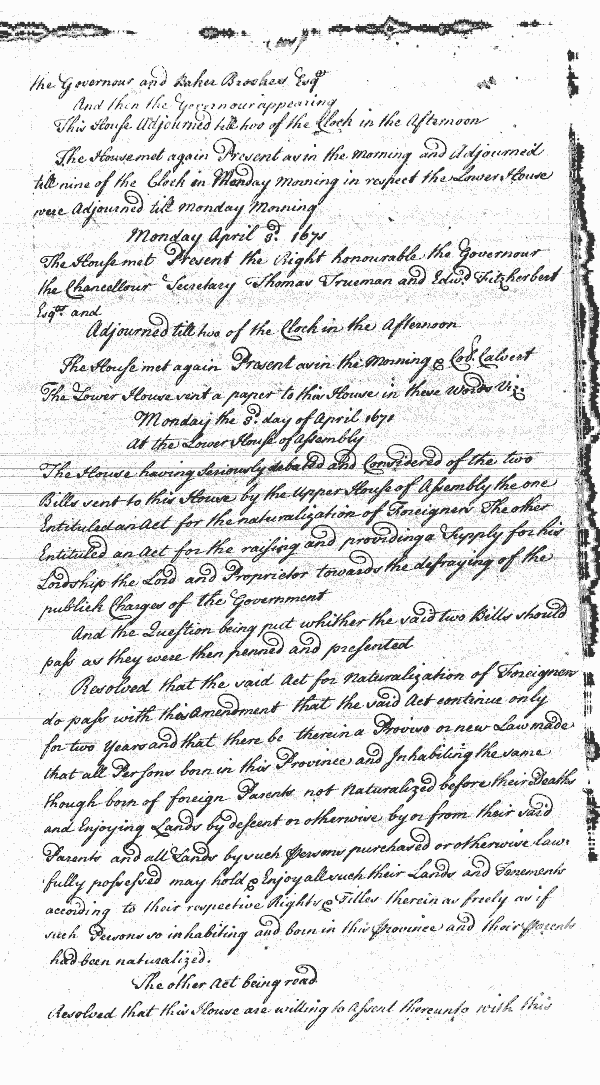 the Governour and Baker Brookes Esqr
And then the Governour appearing
This House Adjourned till two of the Clock in the Afternoon
The House met again Present as in the morning and Adjourned
till nine of the Clock on Monday morning in respect the Lower House
were Adjourned till Monday Morning
Monday April 3d. 1671
The House met Present the Right honourable the Governour
the Chancellour Secretary Thomas Trueman and Edwd. Fitzherbert
Esqrs and
Adjourned till two of the Clock in the Afternoon
The House met again Present as in the Morning & Col. Calvert
The Lower House sent a paper to this House in these Words Viz
Monday the 3d. day of April 1671
At the Lower House of Assembly
The House having Seriously debated and Considered of the two
Bills sent to this House by the Upper House of Assembly the one
Entituled an Act for the naturalization of Foreigners The other
Entituled an Act for the raising and providing a Supply for his
Lordship the Lord and Proprietor towards the defraying of the
publick Charges of the Government
And the Question being put whither the said two Bills should
pass as they were then penned and presented
Resolved that the said Act for Naturalization of Foreigners
do pass with this Amendment that the said Act continue only
for two Years and that there be therein a Proviso or new Law made
that all Persons born in this Province and Inhabiting the same
though born of foreign Parents not Naturalized before their Deaths
and Enjoying Lands by descent or otherwise by or from their said
Parents and all Lands by such Persons purchased or otherwise law-
fully possessed may hold & Enjoy all such their Lands and Tenements
according to their respective Rights & Titles therein as freely as if
such Persons so inhabiting and born in this Province and their Parents
had been naturalized.
The other Act being read
Resolved that this House are willing to Assent thereunto with this